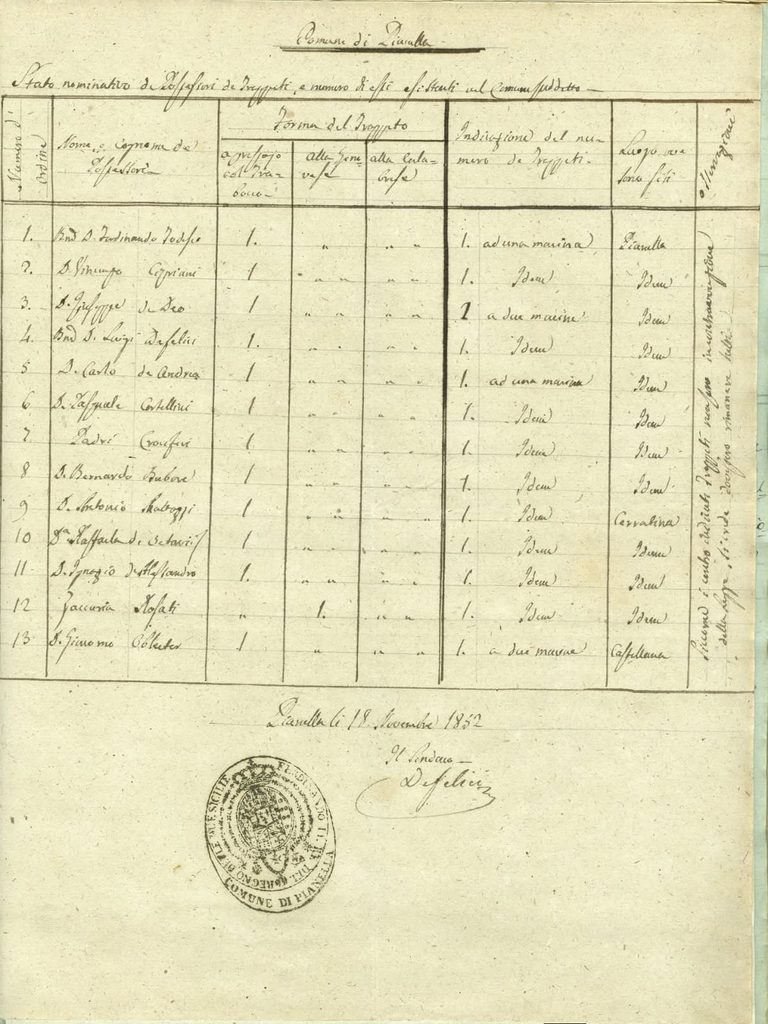 Comune di Pianella
Stato nominativo de Possessori de Trappeti, e numero di essi esistenti nel Comune suddetto
Numero d'ordine
Nome, e Cognome de Possessori
Forma del Trappeto
a pressojo col Tra-
bocco
alla Geno-
vese
alla Cala-
brese
Indicazione del nu-
mero de Trappeti
Luogo ove
sono siti
Osservazioni
1. D. Ferdinando Todesco 1. " " " 1. ad una macina Pianella
2. D. Vincenzo Cipriani 1 " " " " 1. Idem Idem
3. D. Giuseppe de Deo 1 " " " " 1 a due macine Idem
4. D. Luigi Defelici 1. " " " " 1. Idem Idem
5 D. Carlo de Andrea 1 " " " " 1. ad una macina Idem
6 D. Pasquale Cortellini 1 " " " " 1. Idem Idem
7 Padri Crociferi 1 " " " " 1. Idem Idem
8 D. Bernardo 1 " " " " 1. Idem Idem
9 D. Antonio 1 " " " " 1. Idem Cerratina
10 Da. Raffaela de 1 " " " " 1. Idem Idem
11 D. Ignazio d'Alessandro 1. " " " " 1. Idem Idem
12 Zaccaria Rosati " 1. " " 1. Idem Idem
13 D. Giacomo 1 " " " " 1. a due macine Castellana
della legge
Pianella li 18 Novembre 1852
Il Sindaco
Defelici
FERDINANDO II. RE DEL REGNO DELLE DUE SICILIE
COMUNE DI PIANELLA